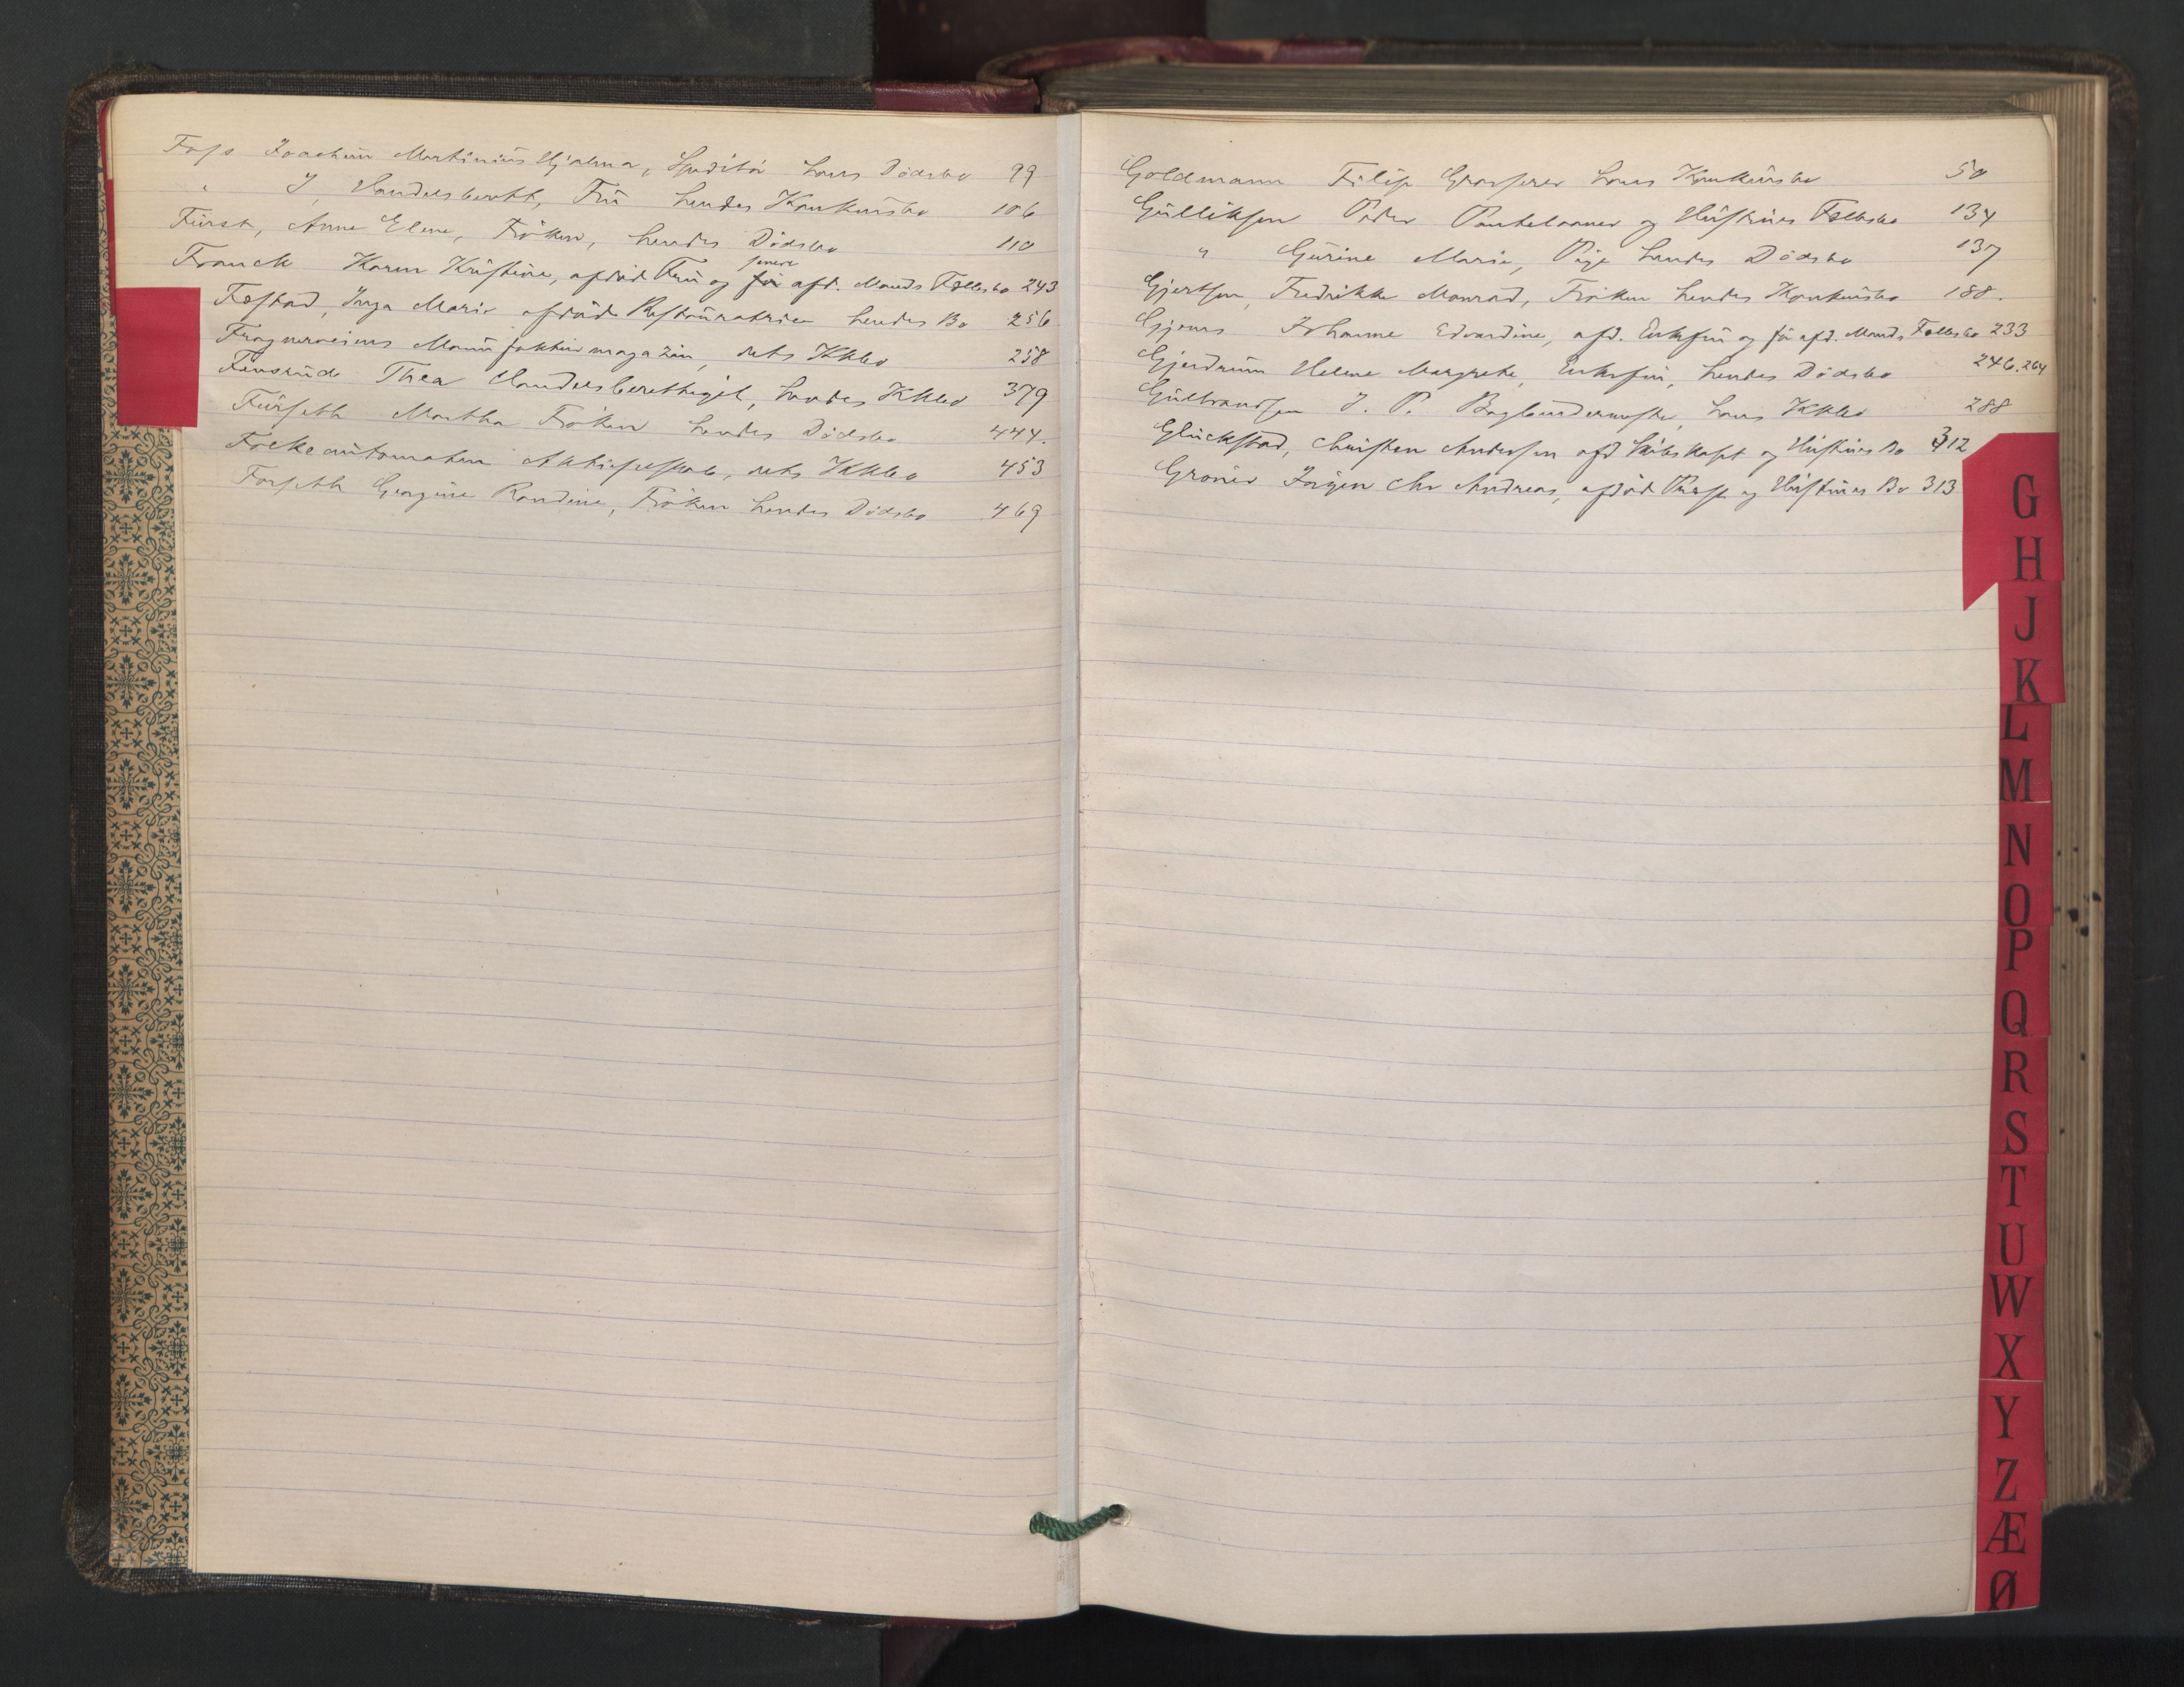 Foss Joachim Martinius Hjalmar, Speditør hans Dødsbo 99
" J, Handelsberett, Frü hendes Konkursbo 106
Fürst, Anne Elene, Frøken, hendes Dødsbo 110
Franck Karen Kristine, afdød Frü og senere før afd. Mands Fællesbo 243
Fostad, Inga Marie afdøde Restauratrice hendes Bo 256
Frognerveiens Manüfakturmagazin, dets Kkbo 258
Finsrüd Thea Handelsberettiget, hendes Kkbo 379
Fürseth Martha Frøken hendes Dødsbo 444.
Folkeautomaten Aktieselskab, dets Kkbo 453
Forseth Georgine Randine, Frøken hendes Dødsbo 469
Goldmann Filip Grosserer hans Konkürsbo 50
Gülliksen Peder Pankelaaner og Hüstrües Fællesbo 134
" Gürine Marie, Pige hendes Dødsbo 137
Gjertsen, Fredrikke Monrad, Frøken hendes Konkürsbo 188.
Gjems Johanne Edvardine, afd. Enkefrü og før afd. Mands Fællesbo 233
Gjerdrüm Helene Margrethe, Enkefrü, hendes Dødsbo 246. 264
Gülbrandsen J. P. Bogbindermester, hans Kkbo 288
Glückstad, Christen Andersen afd Skibskapt og Hüstrües Bo 312
Grøner Jørgen Chr Andreas, afdød Prest og Hüstrües Bo 313
G
H
J
K
L
M
N
O
P
Q
R
S
T
U
W
X
Y
Z
Æ
Ø